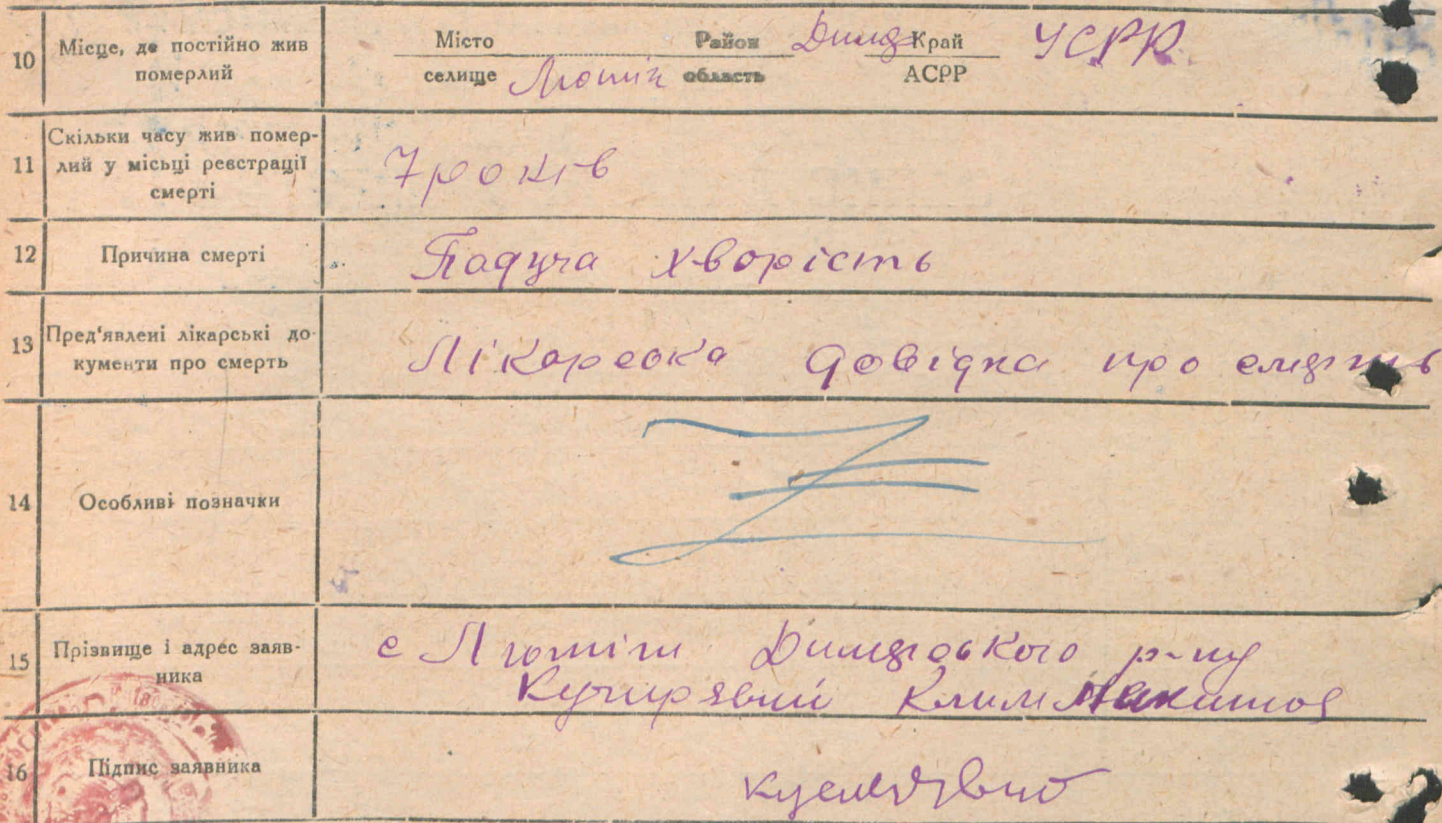 10 Місце, де постійно жив померлий Місто Район Димер Край УСРР
селище Лютіж область АСРР
11 Скільки часу жив помер-
лий у місьці реєстрації
смерті 7 років
12 Причина смерті Падуча хворість
13 Пред'явлені лікарські до-
кументи про смерть Лікарська довідка про смерть
14 Особливі позначки
15 Прізвище і адрес заяв-
ника с Лютіж Димерського р-ну
Кучирявий Клим
16 Підпис заявника